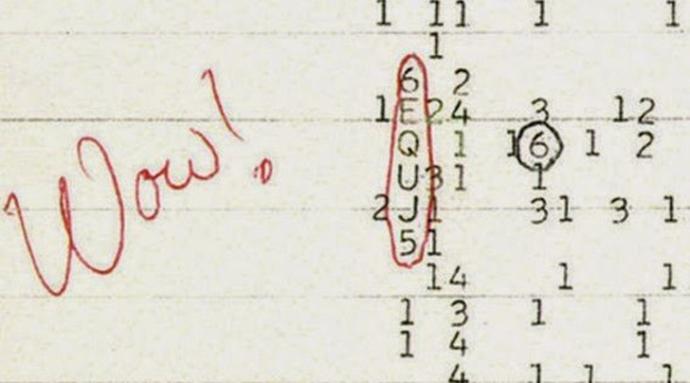 1 11 1 1
1
6 2
1 E 24 3 12
Wow!
Q 1 16 1 2
U 31 1
2 J 1 31 3 1
5 1
14 1 1
1 3 1 1
1 4 1
4 1 1 1